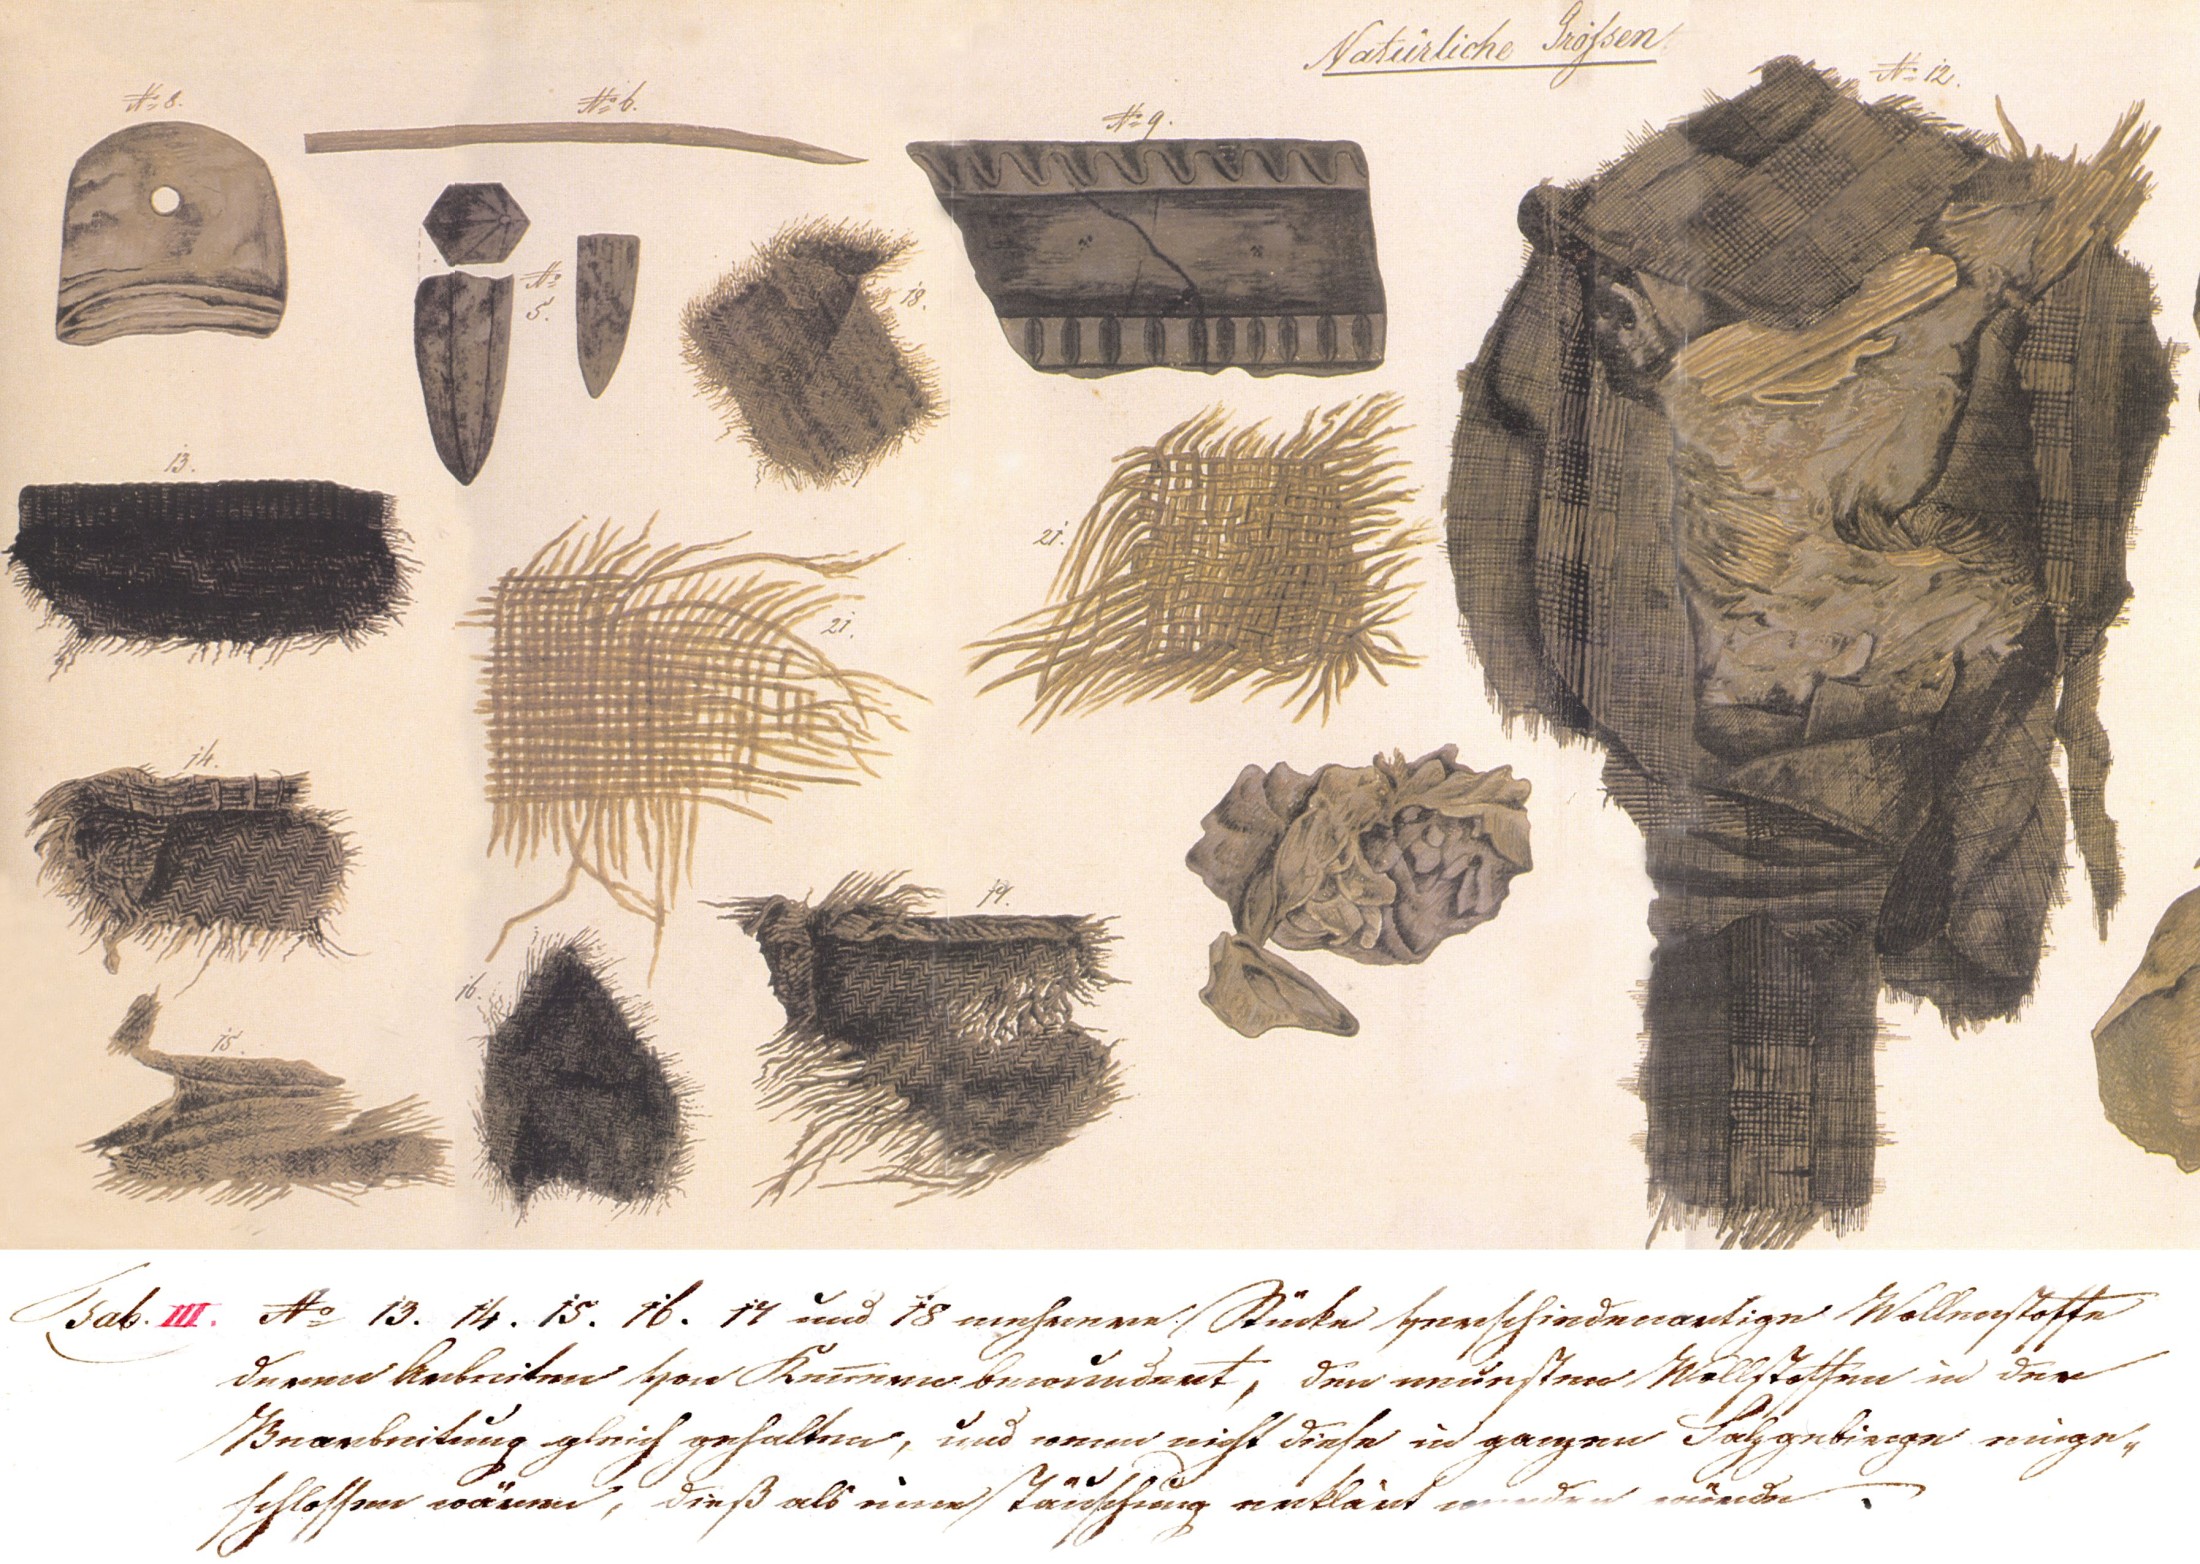 Natürliche Größen
No 8.
No 6.
No 9.
No 12.
No
5.
18.
13.
21.
21.
14.
17.
16.
15.
Tab. III. No 13. 14. 15. 16. 17 und 18 mehrere Stücke verschiedenartige Wollenstoffe
deren Arbeiten von Kennern bewundert, den neuesten Wollstoffen in der
Bearbeitung gleich gehalten, und wenn nicht diese in ganzen Salzgebirge einge-
schlossen wären, dieß als eine Täuschung erklärt werden würde.